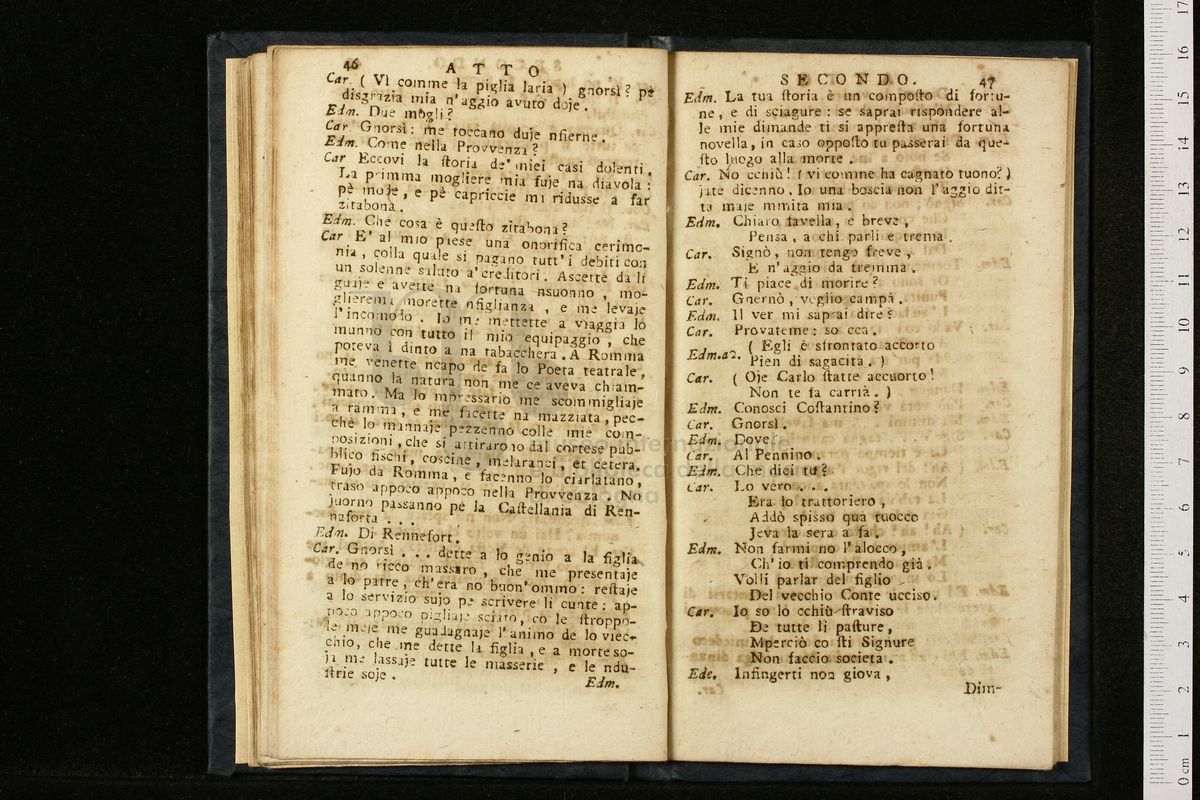 46 ATTO
Car. ( Vi comme la piglia laria ) gnorsì? pè
disgrazia mia n'aggio avuto doje.
Edm. Due mogli?
Car. Gnorsì: me toccano duje nfierne.
Edm. Come nella Provvenza?
Car Eccovi la ſtoria de' miei casi dolenti.
La primma mogliere mia fuje na diavola:
pè moje, e pè capriccie mi ridusse a far
zitabona.
Edm. Che cosa è queſto zitabona?
Car E' al mio piese una onorifica cerimo-
nia, colla quale si pagano tutt'i debiti con
un solenne saluto a' creditori. Ascette da li
guaje e avette na fortuna nsuonno, mo-
glierema morette nfiglianza, e me levaje
l'incomodo. Io me mettette a viaggià lo
munno con tutto il mio equipaggio, che
poteva ì dinto a na tabacchera. A Romma
me venette ncapo de fa lo Poeta teatrale,
quanno la natura non me ce aveva chiam-
mato. Ma lo mpressario me scommigliaje
a ramma, e me facette na mazziata, pec-
chè lo mannaje pezzenno colle mie com-
posizioni, che si attirarono dal cortese pub-
blico fischi, coscine, melaranci, et cetera.
Fujo da Romma, e facenno lo ciarlatano,
traso appoco appoco nella Provvenza. No
juorno passanno pè la Caſtellania di Ren-
naforta . . .
Edm. Di Rennefort.
Car. Gnorsì . . . dette a lo genio a la figlia
de no ricco massaro, che me presentaje
a lo patre, ch'era no buon'ommo: reſtaje
a lo servizio sujo pe scrivere li cunte: ap-
poco appoco pigliaje sciato, co le ſtroppo-
le meje me guadagnaje l'animo de lo viec-
chio, che me dette la figlia, e a morte so-
ja me lassaje tutte le masserie, e le ndu-
ſtrie soje.
Edm.
SECONDO. 47
Edm. La tua ſtoria è un compoſto di fortu-
ne, e di sciagure: se saprai rispondere al-
le mie dimande ti si appreſta una fortuna
novella, in caso oppoſto tu passerai da que-
ſto luogo alla morte.
Car. No cchiù! ( vi comme ha cagnato tuono? )
jate dicenno. Io una boscia non l'aggio dit-
ta maje mmita mia.
Edm. Chiaro favella, e breve,
Pensa, a chi parli e trema.
Car. Signò, non tengo freve,
E n'aggio da tremma.
Edm. Ti piace di morire?
Car. Gnernò, veglio campà.
Edm. Il ver mi saprai dire?
Car. Provateme: so cca.
Edm.a2. ( Egli è sfrontato accorto
Pien di sagacità. )
Car. ( Oje Carlo ſtatte accuorto!
Non te fa carrià. )
Edm. Conosci Coſtantino?
Car. Gnorsì.
Edm. Dove?
Car. Al Pennino.
Edm. Che dici tu?
Car. Lo vero . . .
Era lo trattoriero,
Addò spisso quà tuocco
Jeva la sera a fa.
Edm. Non farmi no l'alocco,
Ch'io ti comprendo già.
Volli parlar del figlio
Del vecchio Conte ucciso.
Car. Io so lo cchiù ſtraviso
De tutte li paſture,
Mperciò co ſti Signure
Non faccio società.
Ede. Infingerti non giova,
Dim-